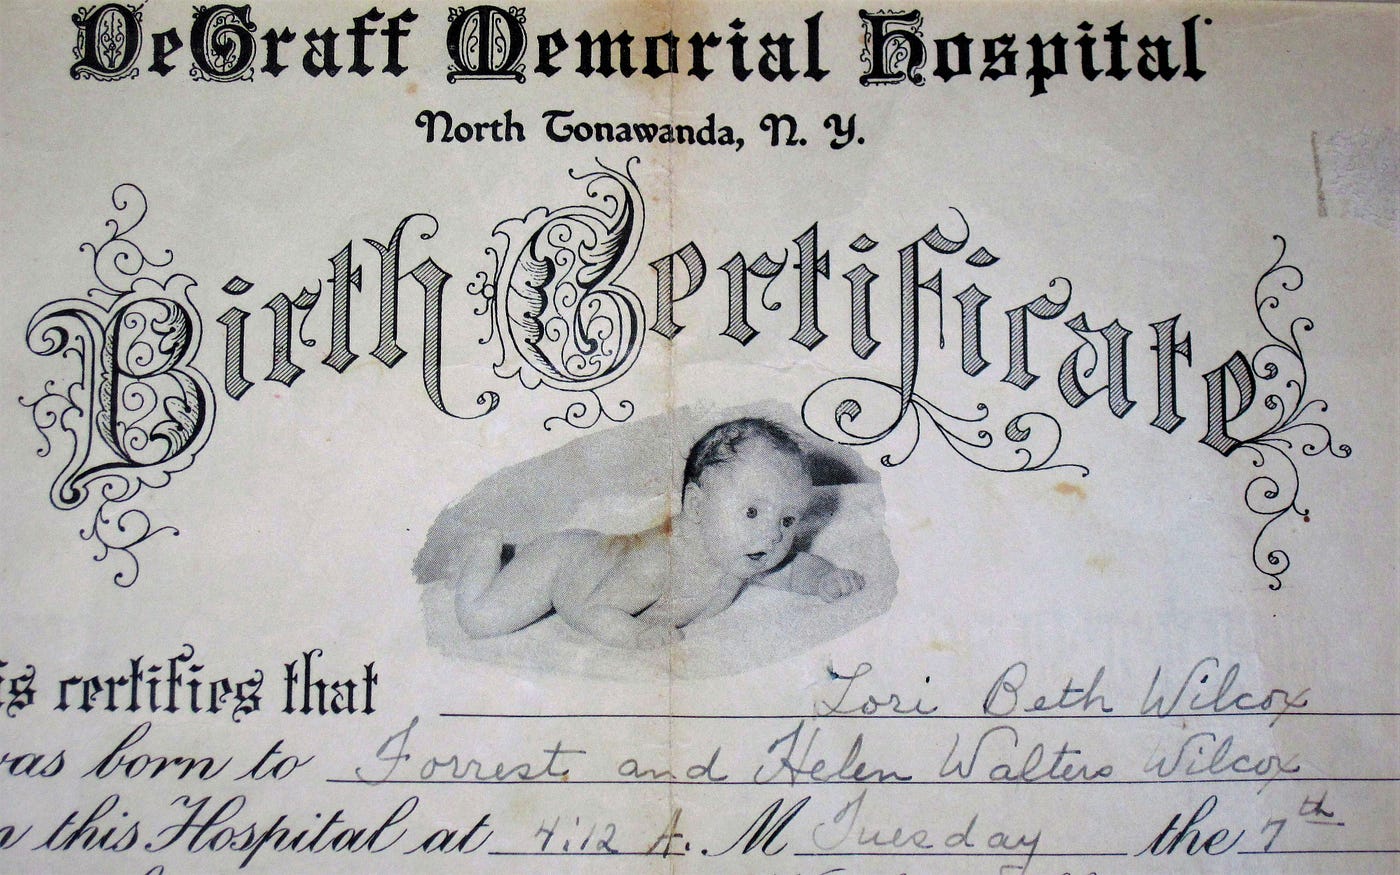 DeGraff Memorial Hospital
North Tonawanda, N. Y.
Birth Certificate
is certifies that Lori Beth Wilcox
was born to Forrest and Helen Walters Wilcox
n this Hospital at 4:12 A. M Tuesday the 7th